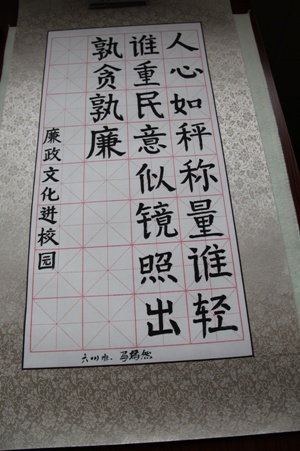 人心如秤称量谁轻
谁重民意似镜照出
孰贪孰廉
廉政文化进校园